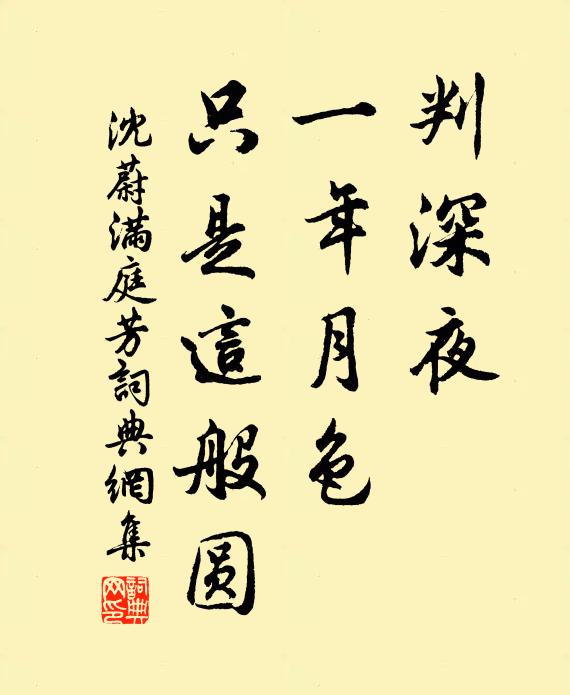 判深夜
一年月色
只是這般圆
沈蔚滿庭芳詞典網集
詞典网印